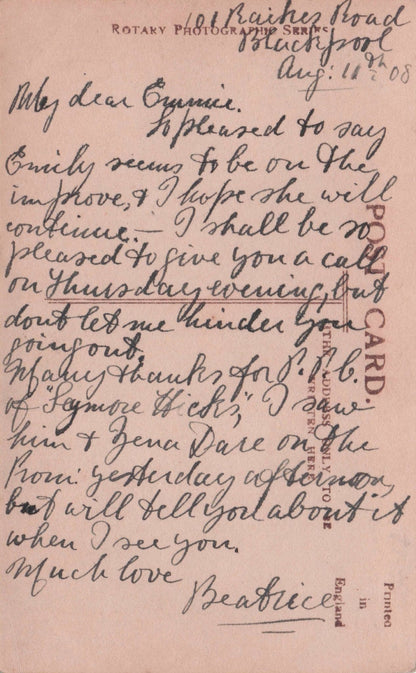 101 Raikes Road
ROTARY PHOTOGRAPHIC SERIES
Blackpool
Aug: 11th 08
My dear Emmie.
So pleased to say
Emily seems to be on the
improve, & I hope she will
continue. — I shall be so
pleased to give you a call
on Thursday evening, but
dont let me hinder you
going out.
Many thanks for P.P.C.
of "Seymore Hicks", I saw
him & Zena Dare on the
Prom: yesterday afternoon,
but will tell you about it
when I see you.
Much love
Beatrice
POST CARD.
THE ADDRESS ONLY TO BE
WRITTEN HERE
Printed
in
England